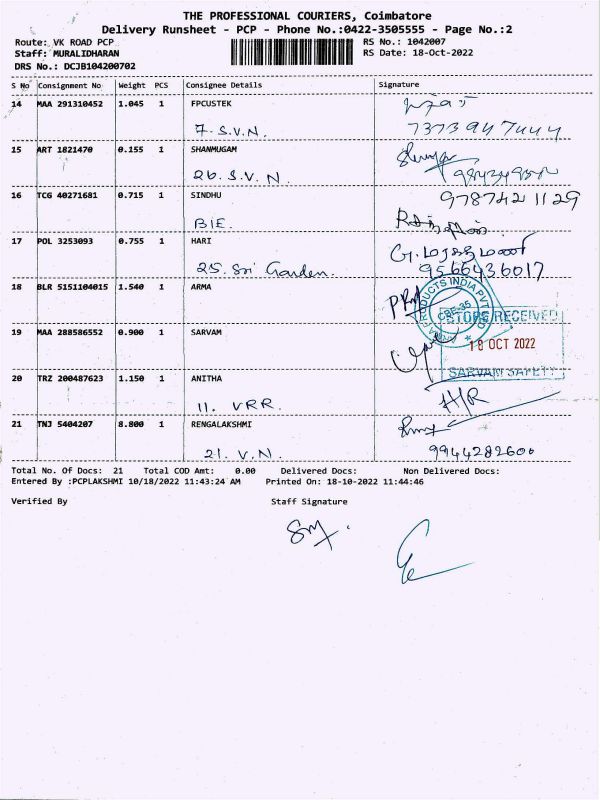 THE PROFESSIONAL COURIERS, Coimbatore
Delivery Runsheet - PCP - Phone No.:0422-3505555 - Page No.:2
Route: VK ROAD PCP RS No.: 1042007
Staff: MURALIDHARAN RS Date: 18-Oct-2022
DRS No.: DCJB104200702
S No Consignment No Weight PCS Consignee Details Signature
14 MAA 291310452 1.045 1 FPCUSTEK
7. S.V.N. 7373947444
15 ART 1821470 0.155 1 SHANMUGAM
26. S.V.N.
16 TCG 40271681 0.715 1 SINDHU 9787421129
BIE.
17 POL 3253093 0.755 1 HARI
25. Sri Garden. 9566436017
18 BLR 5151104015 1.540 1 ARMA
PRODUCTS INDIA PVT
CBE-35
STORE RECEIVED
19 MAA 288586552 0.900 1 SARVAM
18 OCT 2022
SARVAM SAFETY
20 TRZ 200487623 1.150 1 ANITHA
11. VRR.
21 TNJ 5404207 8.800 1 RENGALAKSHMI
21. V.N. 9944282600
Total No. Of Docs: 21 Total COD Amt: 0.00 Delivered Docs: Non Delivered Docs:
Entered By :PCPLAKSHMI 10/18/2022 11:43:24 AM Printed On: 18-10-2022 11:44:46
Verified By Staff Signature